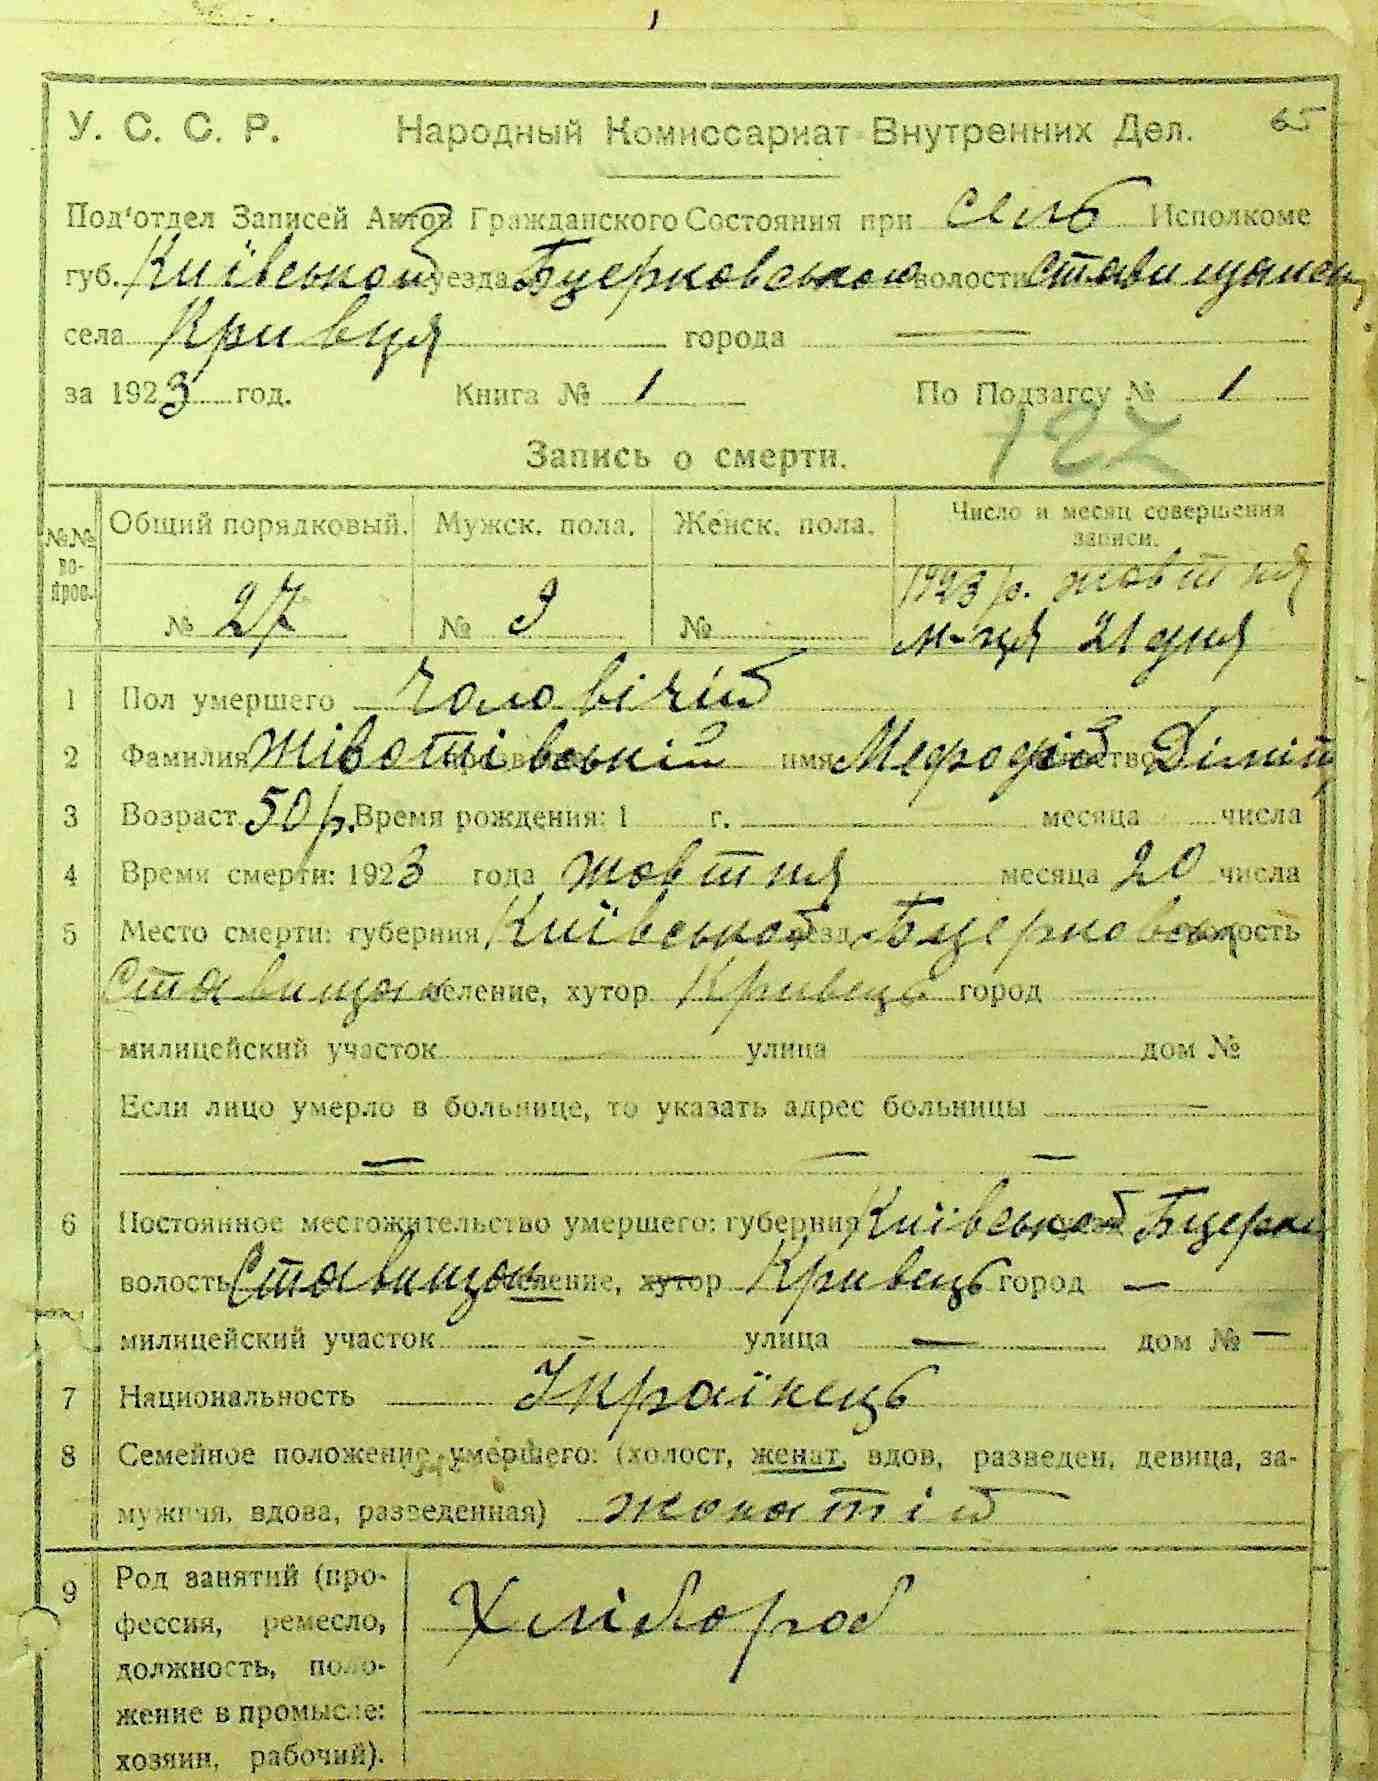 65
У. С. С. Р. Народный Комиссариат Внутренних Дел.
Под'отдел Записей Актов Гражданского Состояния при сель Исполкоме
губ. Київської уезда Бцерковського волости Ставищанськ
села Кривця города —
за 1923 год. Книга № 1 По Подзагсу № 1
127
Запись о смерти.
№№ во- прос. Общий порядковый. Мужск. пола. Женск. пола. Число и месяц совершения записи.
1923 р. жовтня
№ 27 № 9 № м-ця 21 дня
1 Пол умершего чоловічій
2 Фамилия Животівській имя Мефодій Діміт
3 Возраст 50 р. Время рождения: 1 г. месяца числа
4 Время смерти: 1923 года жовтня месяца 20 числа
5 Место смерти: губерния Київської Бцерковськ волость
Ставищан селение, хутор Кривець город
милицейский участок улица дом №
Если лицо умерло в больнице, то указать адрес больницы —
— — —
6 Постоянное местожительство умершего: губерния Київської Бцерк
волость Ставищан селение, хутор Кривець город —
милицейский участок – улица — дом № —
7 Национальность Українець
8 Семейное положение умершего: (холост, женат, вдов, разведен, девица, за-
мужняя, вдова, разведенная) жонатій
9 Род занятий (про- Хлібороб
фессия, ремесло,
должность, поло-
жение в промысле:
хозяин, рабочий).